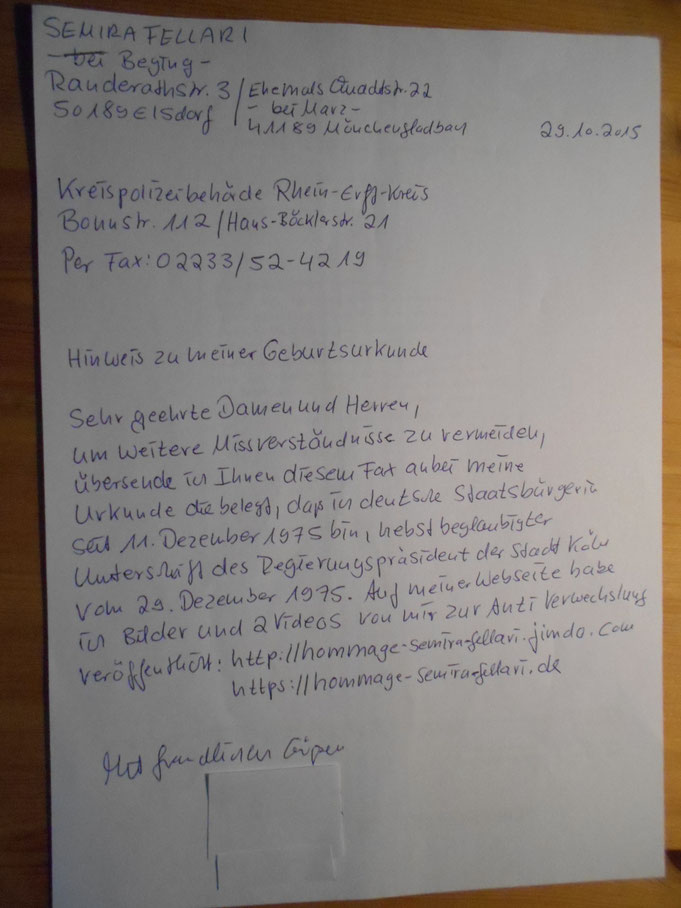 SEMIRA FELLARI
- bei Beging -
Randerathstr. 3 / Ehemals Quadtstr. 22
50189 Elsdorf / - bei Marx -
41189 Mönchengladbach
29.10.2015
Kreispolizeibehörde Rhein-Erft-Kreis
Bonnstr. 112 / Hans-Böcklerstr. 21
Per Fax: 02233/52-4219
Hinweis zu meiner Geburtsurkunde
Sehr geehrte Damen und Herren,
um weitere Missverständnisse zu vermeiden,
übersende ich Ihnen diesem Fax anbei meine
Urkunde die belegt, daß ich deutsche Staatsbürgerin
seit 11. Dezember 1975 bin, nebst beglaubigter
Unterschrift des Regierungspräsident der Stadt Köln
vom 29. Dezember 1975. Auf meiner Webseite habe
ich Bilder und 2 Videos von mir zur Anti Verwechslung
veröffentlicht: http://hommage-semira-fellari.jimdo.com
https://hommage-semira-fellari.de
Mit freundlichen Grüßen